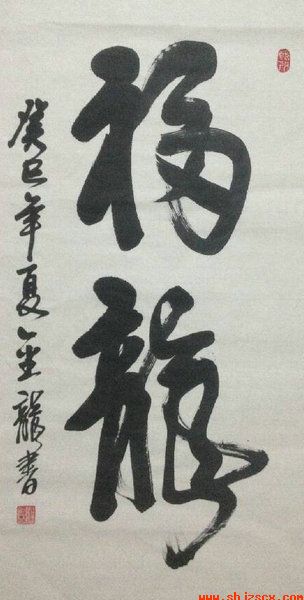 福龍
癸巳年夏金龍書
www.shjzscx.com